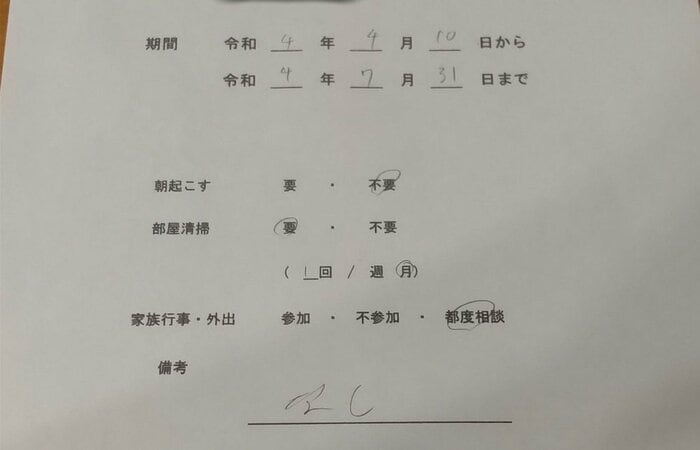 期間 令和 4 年 4 月 10 日から
令和 4 年 7 月 31 日まで
朝起こす 要 ・ 不要
部屋清掃 要 ・ 不要
( 1回 / 週 月)
家族行事・外出 参加 ・ 不参加 ・ 都度相談
備考
なし